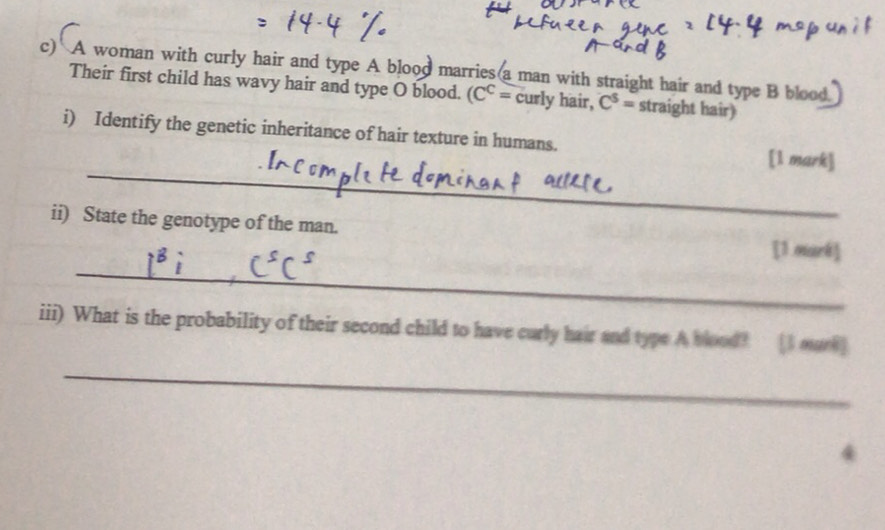 = 14.4 %
between gene = 14.4 map unit
A and B
c) A woman with curly hair and type A blood marries a man with straight hair and type B blood.
Their first child has wavy hair and type O blood. (Cᶜ = curly hair, Cˢ = straight hair)
i) Identify the genetic inheritance of hair texture in humans.
[1 mark]
Incomplete dominant
ii) State the genotype of the man.
[1 mark]
Iᴮ i , CˢCˢ
iii) What is the probability of their second child to have curly hair and type A blood? [1 mark]
4